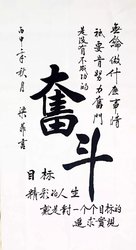 無論做什麼事情
祗要肯努力奮鬥
是没有不成功的
奮斗
丙申之秋月
梁菲書
目标
精彩的人生
就是對一个个目标的
追求實現